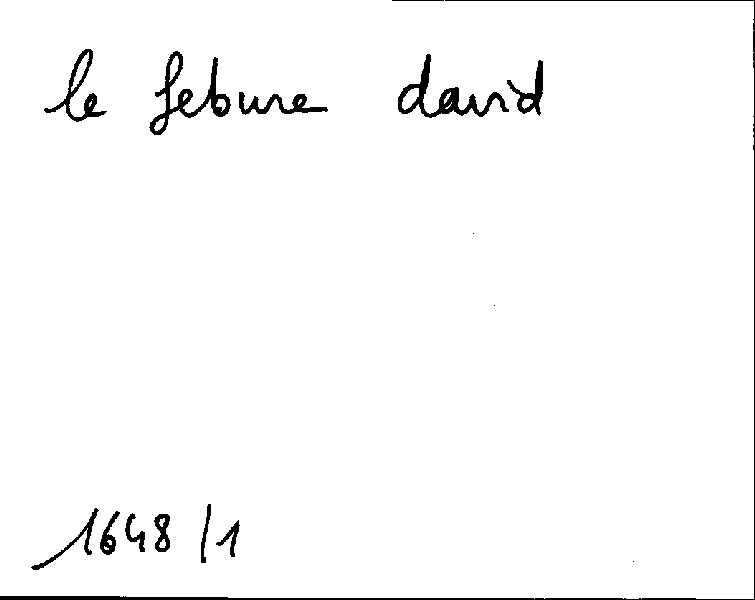 le febure david
1648/1